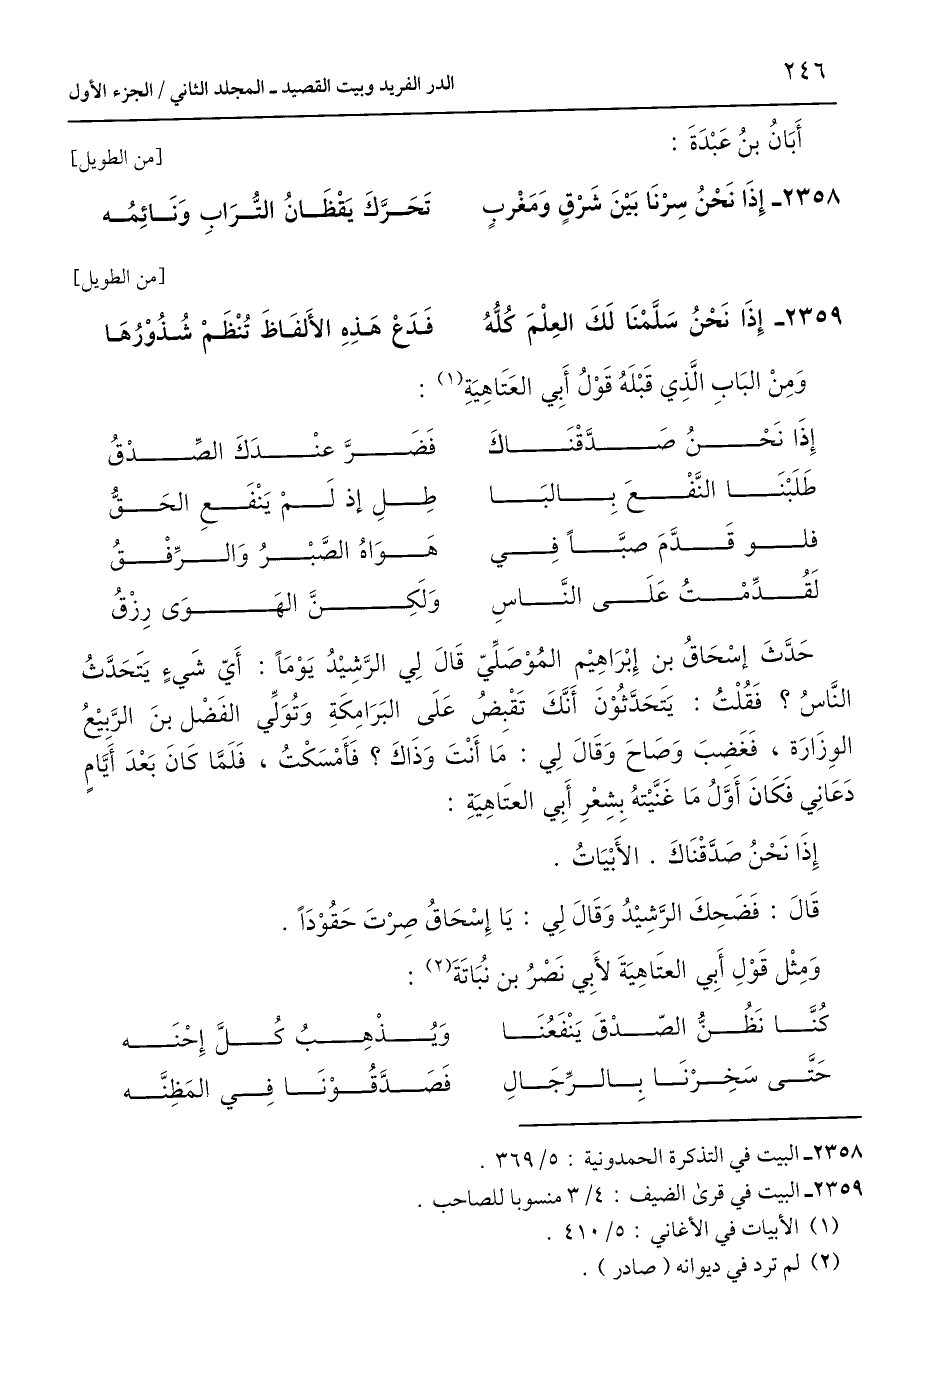 ٢٤٦
الدر الفريد وبيت القصيد ـ المجلد الثاني / الجزء الأول
أَبَانُ بنُ عَبْدَةَ :
[من الطويل]
٢٣٥٨ـ إِذَا نَحْنُ سِرْنَا بَيْنَ شَرْقٍ وَمَغْربٍ تَحَرَّكَ يَقْظَانُ التُّرَابِ وَنَائِمُه
[من الطويل]
٢٣٥٩ـ إِذَا نَحْنُ سَلَّمْنَا لَكَ العِلْمَ كُلَّهُ فَدَعْ هَذِهِ الأَلفَاظَ تُنْظَمْ شُذُوْرُهَا
وَمِنْ البَابِ الَّذِي قَبْلَهُ قَوْلُ أَبِي العَتَاهِيَةِ(١) :
إِذَا نَحْنُ صَدَّقْنَاكَ فَضَرَّ عنْدَكَ الصِّدْقُ
طَلَبْنَا النَّفْعَ بِالبَا طِلِ إذ لَمْ يَنْفَعِ الحَقُّ
فلو قَدَّمَ صبَّاً فِي هَوَاهُ الصَّبْرُ وَالرِّفْقُ
لَقُدِّمْتُ عَلَى النَّاسِ وَلَكِنَّ الهَوَى رِزْقُ
حَدَّثَ إِسْحَاقُ بن إِبْرَاهِيْم المُوْصَلِّيّ قَالَ لِي الرَّشِيْدُ يَوْمَاً : أَيّ شَيءٍ يَتَحَدَّثُ
النَّاسُ ؟ فَقُلْتُ : يَتَحَدَّثُوْنَ أَنَّكَ تَقْبضُ عَلَى البَرَامِكَةِ وَتُوَلِّي الفَضْل بنَ الرَّبِيْعُ
الوِزَارَة ، فَغَضِبَ وَصَاحَ وَقَالَ لِي : مَا أَنْتَ وَذَاكَ ؟ فَأَمْسَكْتُ ، فَلَمَّا كَانَ بَعْدَ أَيَّامٍ
دَعَانِي فَكَانَ أَوَّلُ مَا غَنَّيْتهُ بِشِعْرِ أَبِي العتَاهِيَةِ :
إِذَا نَحْنُ صَدَّقْنَاكَ . الأَبْيَاتُ .
قَالَ : فَضَحِكَ الرَّشِيْدُ وَقَالَ لِي : يَا إِسْحَاقُ صِرْتَ حَقُوْدَاً .
وَمِثْل قَوْلِ أَبِي العتَاهِيَةَ لأَبِي نَصْرُ بن نُبَاتَةَ(٢) :
كُنَّا نَظُنُّ الصّدْقَ يَنْفَعُنَا وَيُذْهِبُ كُلَّ إِحْنَه
حَتَّى سَخِرْنَا بِالرِّجَالِ فَصَدَّقُوْنَا فِي المَظِنَّه
٢٣٥٨ـ البيت في التذكرة الحمدونية : ٥/ ٣٦٩ .
٢٣٥٩ـ البيت في قرىٰ الضيف : ٤/ ٣ منسوبا للصاحب .
(١) الأبيات في الأغاني : ٥/ ٤١٠ .
(٢) لم ترد في ديوانه ( صادر ) .